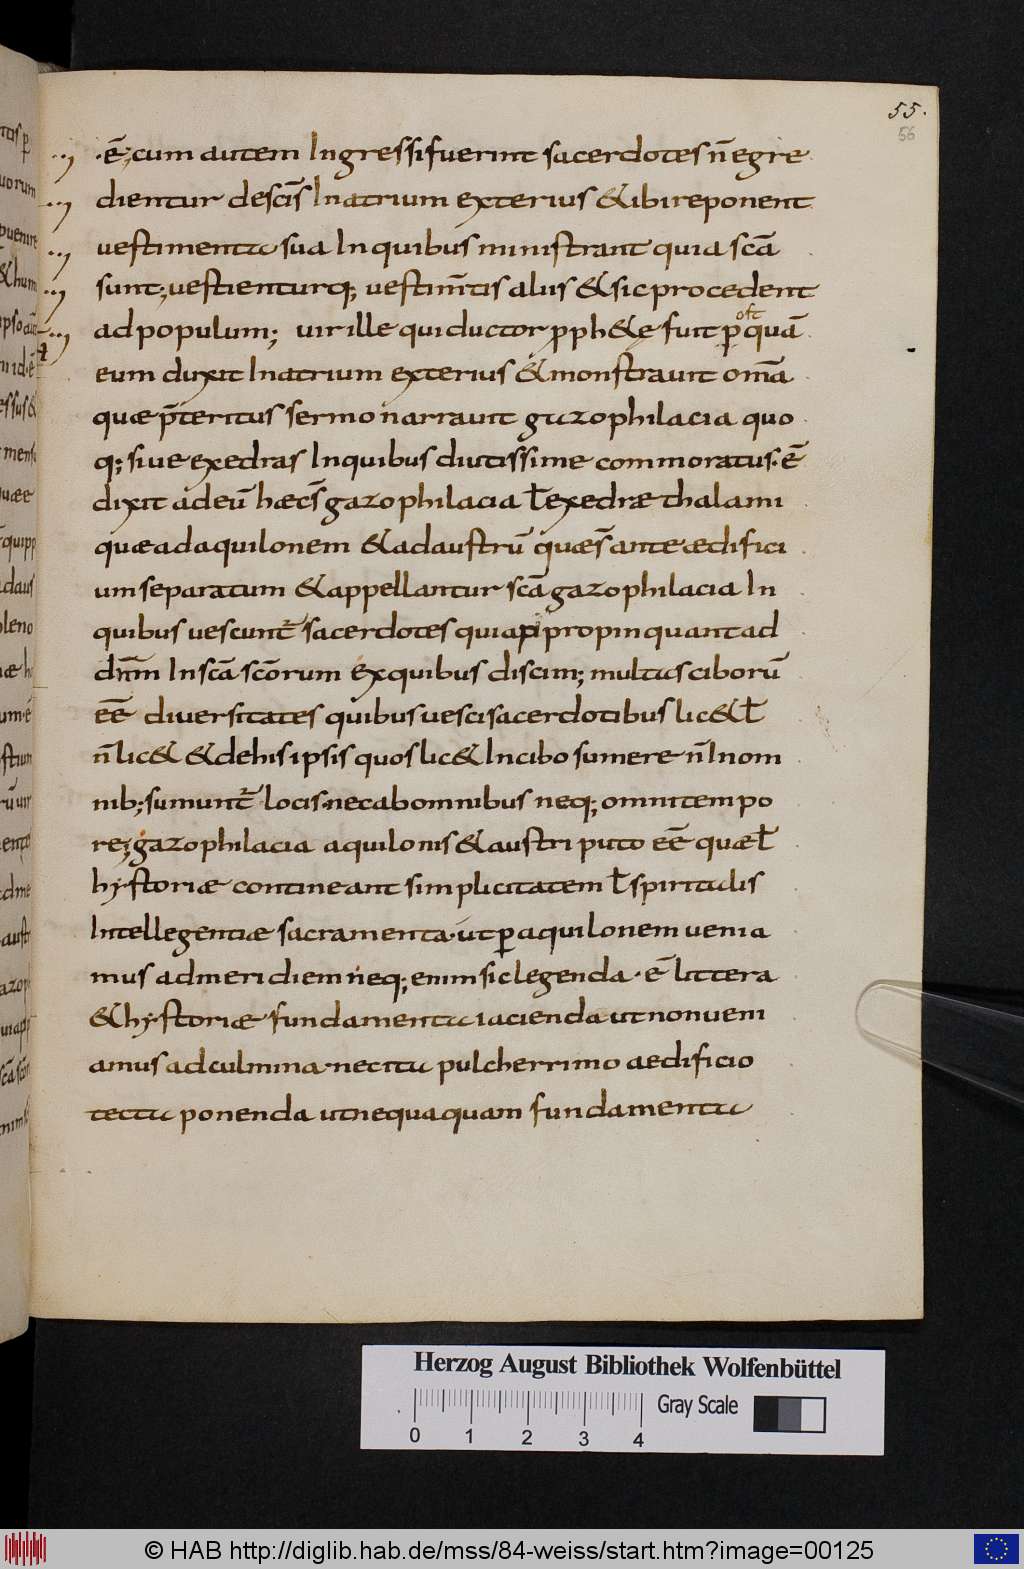 55.
56
·ē; cum autem Ingressi fuerint sacerdotes n̄ egre
dientur de scīs In atrium exterius & ibi reponent
vestimenta sua In quibus ministrant quia scā
sunt; vestienturq; vestim̄tis aliis & sic procedent
ad populum; vir ille qui ductor pph&ę fuit p quā
eum duxit In atrium exterius & monstravit om̄a
quæ p̄teritus sermo narravit gazophilacia quo
q; sive exedras In quibus diutissime commoratus·ē
dixit ad eū hæc s̄ gazophilacia ł exedræ thalami
quæ ad aquilonem & ad austrū quæ s̄ ante ædifici
um separatum & appellantur scā gazophilacia In
quibus vescunt̄ sacerdotes qui appropinquant ad
dn̄m In scā scōrum ex quibus discim; multas ciborū
eē diversitates quibus vesci sacerdotibus lic& ł
n̄ lic& & de his ipsis quos lic& In cibo sumere n̄ In om
nib; sumunt̄ locis. nec ab omnibus neq; omni tempo
re; gazophilacia aquilonis & austri puto eē quæ ł
hystoriæ contineant simplicitatem ł spiritalis
Intellegentiæ sacramenta· ut p aquilonem venia
mus ad meridiem neq; enim sic legenda·ē littera
& hystoriæ fundamenta iacienda ut non veni
amus ad culmina· nec ita pulcherrimo aedificio
tecta ponenda ut nequaquam fundamenta
Herzog August Bibliothek Wolfenbüttel
Gray Scale
0 1 2 3 4
© HAB http://diglib.hab.de/mss/84-weiss/start.htm?image=00125